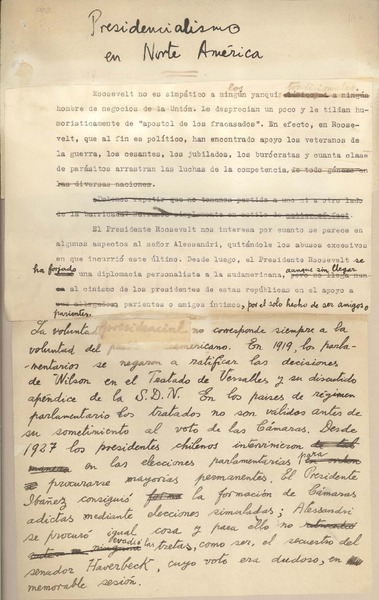 Presidencialismo
en Norte América
Roosevelt no es simpático a ningún yanqui a ningún
hombre de negocios de la Unión. Le desprecian un poco y le tildan hu-
morísticamente de "apostol de los fracasados". En efecto, en Roose-
velt, que al fin es político, han encontrado apoyo los veteranos de
la guerra, los cesantes, los jubilados, los burócratas y cuanta clase
de parásitos arrastran las luchas de la competencia, de todo género en
las diversas naciones.
Debemos repetir que no tomamos partido a uno ni a otro lado
de la barricada
El Presidente Roosevelt nos interesa por cuanto se parece en
algunos aspectos al señor Alessandri, quitándole los abusos excesivos
en que incurrió este último. Desde luego, el Presidente Roosevelt se
ha forjado una diplomacia personalista a la sudamericana, aunque sin llegar
al cinismo de los presidentes de estas repúblicas en el apoyo a
parientes o amigos íntimos, por el solo hecho de ser amigos o
parientes.
La voluntad presidencial no corresponde siempre a la
voluntad del americano. En 1919, los parla-
mentarios se negaron a ratificar las decisiones
de Wilson en el Tratado de Versalles y su discutido
apéndice de la S.D.N. En los países de régimen
parlamentario los tratados no son válidos antes de
su sometimiento al voto de las Cámaras. Desde
1927 los presidentes chilenos intervinieron
en las elecciones parlamentarias para
procurarse mayorías permanentes. El Presidente
Ibáñez consiguió la formación de Cámaras
adictas mediante elecciones simuladas; Alessandri
se procuró igual cosa y para ello no
evadió las tretas, como ser, el secuestro del
senador Haverbeck, cuyo voto era dudoso, en
memorable sesión.